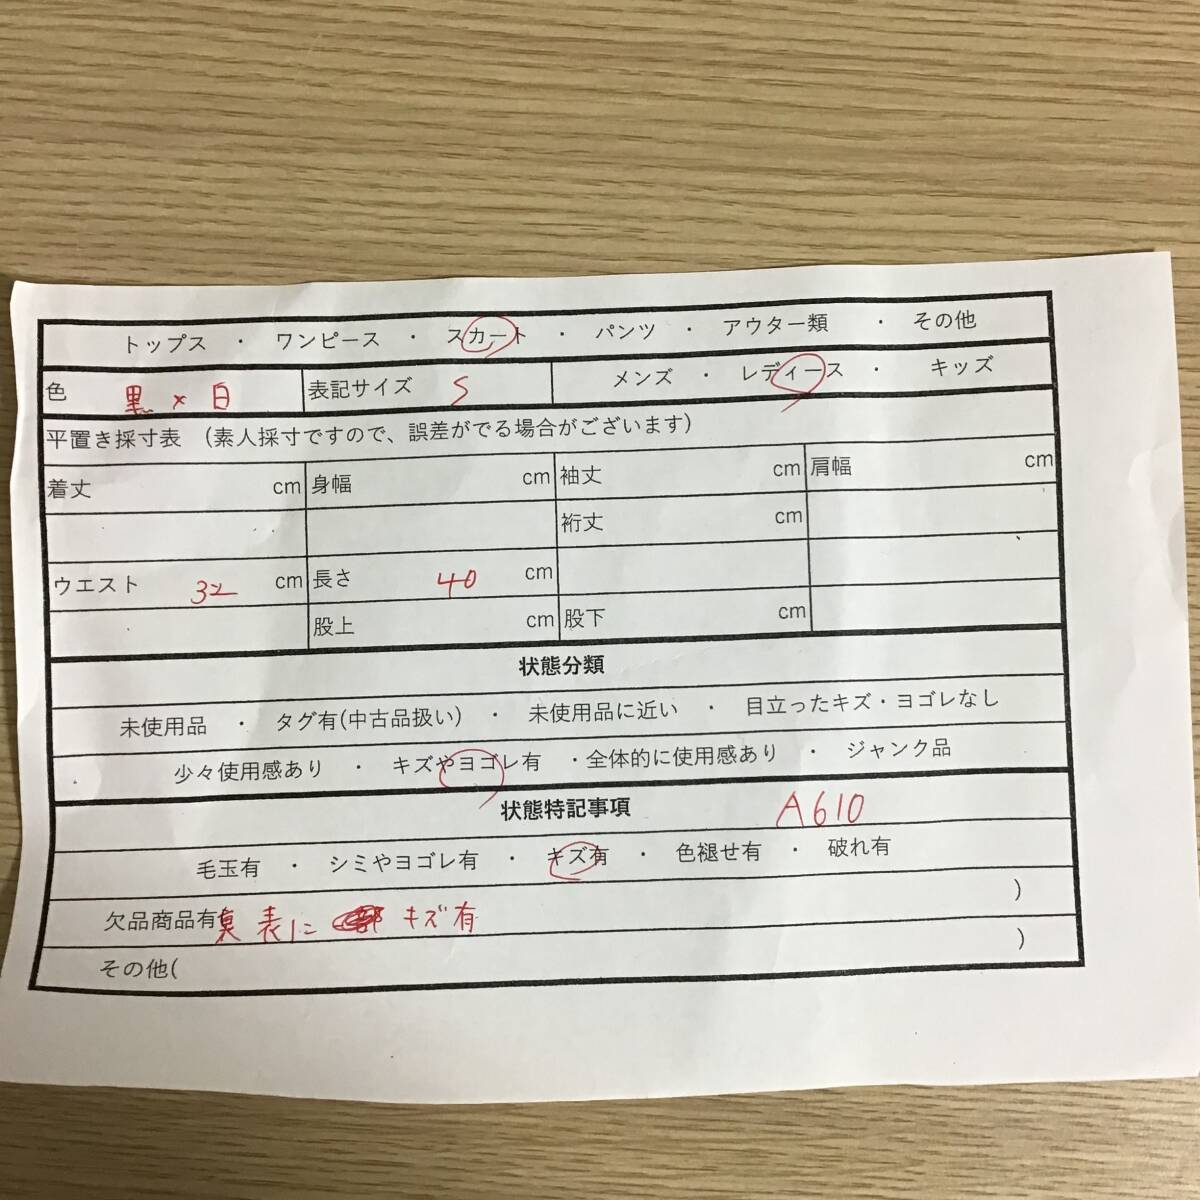 トップス ・ ワンピース ・ スカート ・ パンツ ・ アウター類 ・ その他
色 黒 × 白 表記サイズ S メンズ ・ レディース ・ キッズ
平置き採寸表 (素人採寸ですので、誤差がでる場合がございます)
着丈 cm 身幅 cm 袖丈 cm 肩幅 cm
裄丈 cm
ウエスト 32 cm 長さ 40 cm
股上 cm 股下 cm
状態分類
未使用品 ・ タグ有(中古品扱い) ・ 未使用品に近い ・ 目立ったキズ・ヨゴレなし
少々使用感あり ・ キズやヨゴレ有 ・全体的に使用感あり ・ ジャンク品
状態特記事項 A610
毛玉有 ・ シミやヨゴレ有 ・ キズ有 ・ 色褪せ有 ・ 破れ有
欠品商品有 表に キズ有 )
その他( )